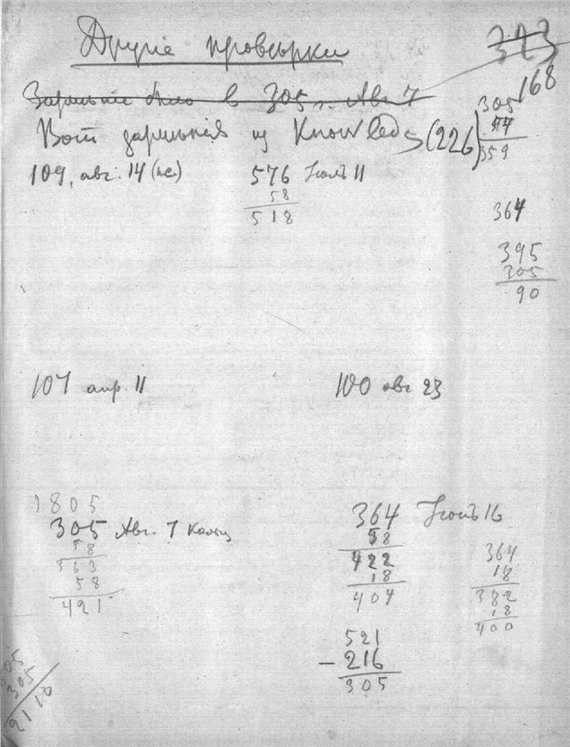 Другіе провѣрки
313
168
Зарытіе было в 305, Авг 7
305
Вот зарытія из Knowleds (226)
54
359
109, авг. 14 (нс.) 576 Іюль 11
58
518
364
395
305
90
107 апр 11 100 авг 23
1805
305 Авг. 7
58
363
58
421
364 Іюль 16
58
422
18
404
364
18
382
18
400
521
- 216
305
305
2110